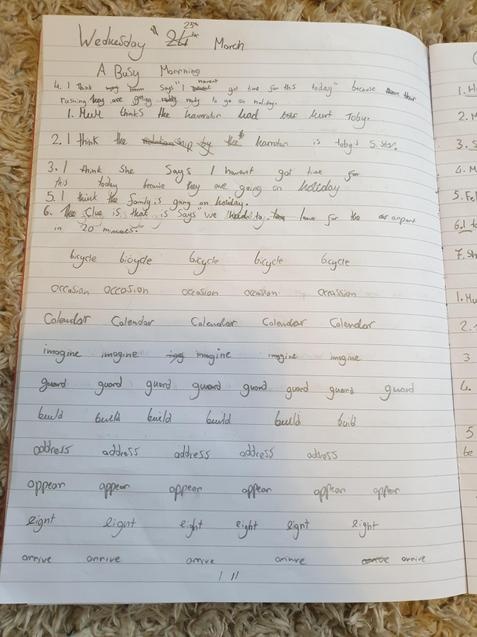 Wednesday 25th March
A Busy Morning
4. I think Says "I havent got time for this today" because
rushing are going to go on holiday.
1. Mum thinks the hamster had hurt Toby.
2. I think the the narrator is toby's sister.
3. I think she Says I havent got time for
this today because they are going on holiday
5. I think the family is going on holiday.
6. The Clue is that is says "we leave for the airport
in 20 minutes.
bicycle bicycle bicycle bicycle bicycle
occasion occasion occasion occasion occassion
Calendar Calendar Calendar Calendar Calendar
imagine imagine imagine imagine imagine
guard guard guard guard guard guard guard guard
build build build build build build
address address address address address
appear appear appear appear appear appear
eight eight eight eight eight eight
arrive arrive arrive arrive arrive